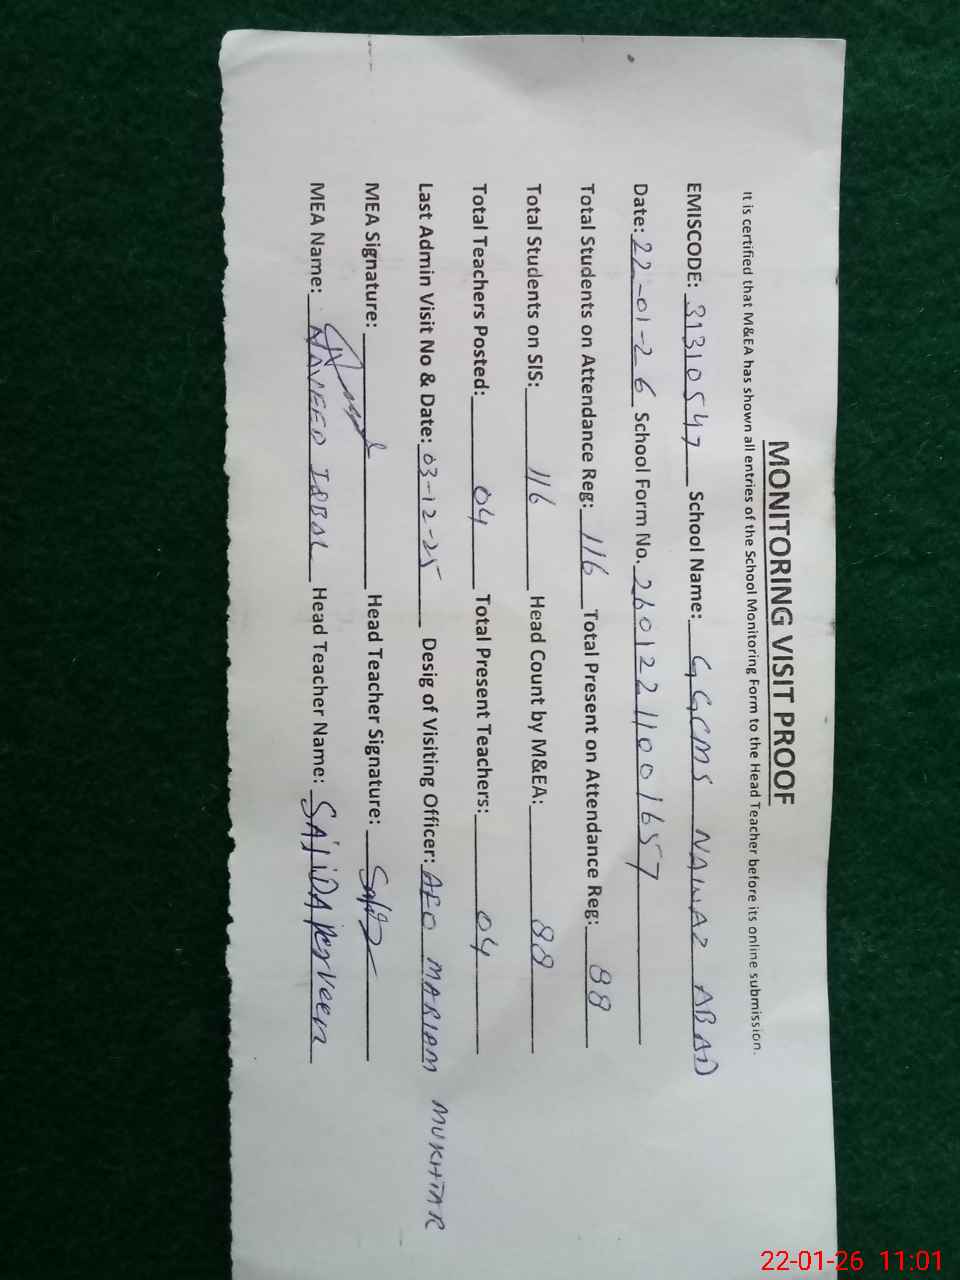 MONITORING VISIT PROOF
It is certified that M&EA has shown all entries of the School Monitoring Form to the Head Teacher before its online submission.
EMISCODE: 31310547 School Name: GGCMS NAWAZ ABAD
Date: 22-01-26 School Form No. 2601221001657
Total Students on Attendance Reg: 116 Total Present on Attendance Reg: 88
Total Students on SIS: 116 Head Count by M&EA: 88
Total Teachers Posted: 04 Total Present Teachers: 04
Last Admin Visit No & Date: 03-12-25 Desig of Visiting Officer: AEO MARIAM MUKHTAR
MEA Signature: Head Teacher Signature:
MEA Name: NAVEED IQBAL Head Teacher Name: SAJIDA Perveen
22-01-26 11:01